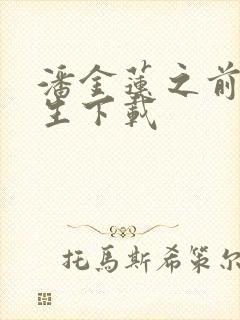 潘金蓮之前
生下載
托馬斯希策尔